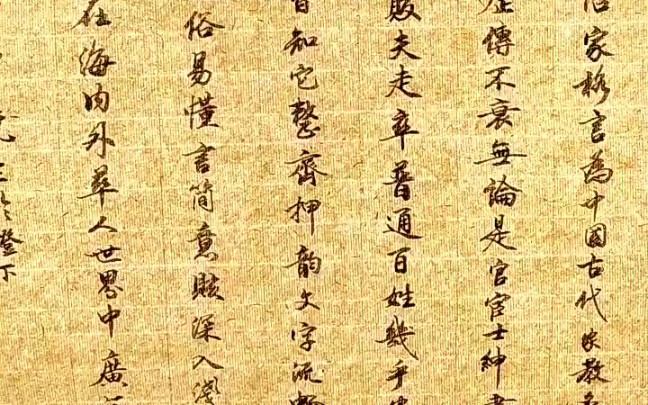 治家格言為中國古代家教名
歷傳不衰無論是官宦士紳書
販夫走卒普通百姓幾乎家
皆知它整齊押韵文字流暢
俗易懂言簡意賅深入淺
在海内外華人世界中廣
燈下